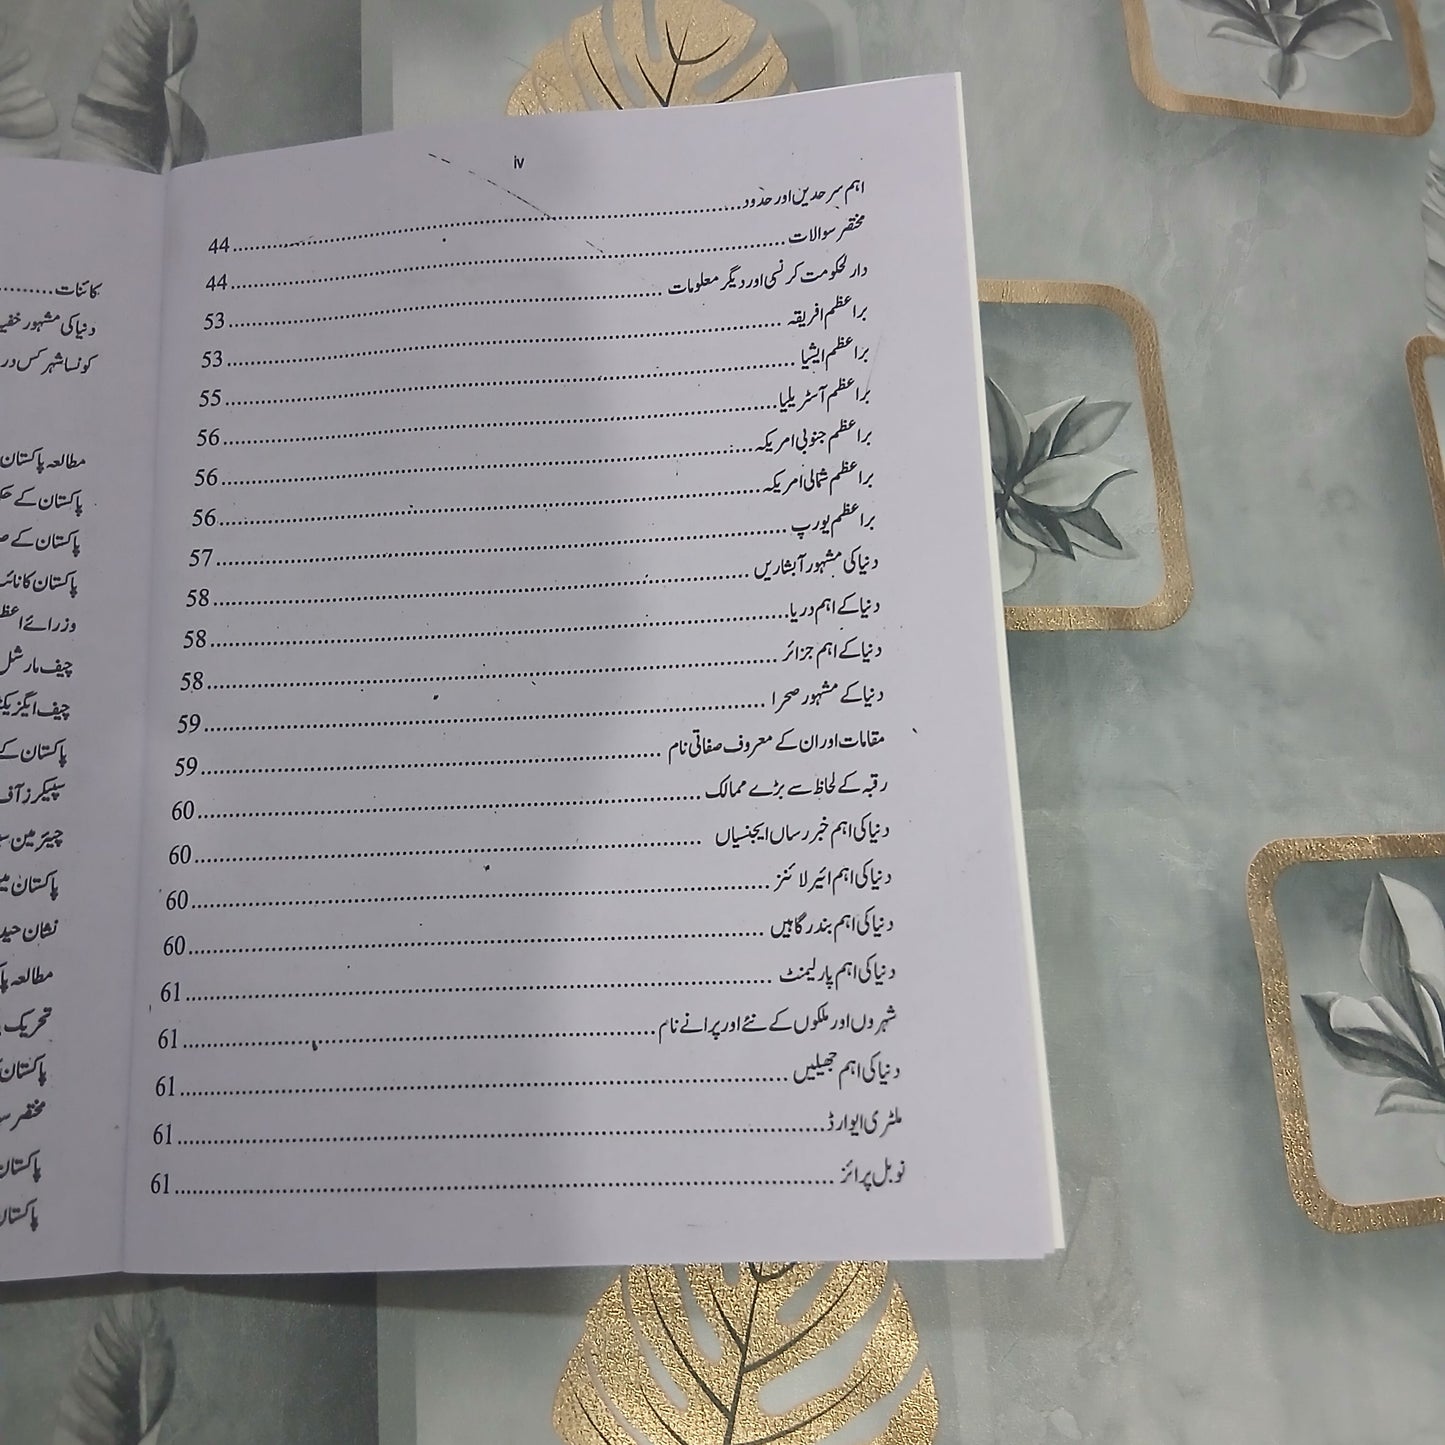 iv
اہم سرحدیں اور حدود........44
مختصر سوالات........44
دارلحکومت کرنسی اور دیگر معلومات........53
براعظم افریقہ........53
براعظم ایشیا........55
براعظم آسٹریلیا........56
براعظم جنوبی امریکہ........56
براعظم شمالی امریکہ........56
براعظم یورپ........57
دنیا کی مشہور آبشاریں........58
دنیا کے اہم دریا........58
دنیا کے اہم جزائر........58
دنیا کے مشہور صحرا........59
مقامات اور ان کے معروف صفاتی نام........59
رقبہ کے لحاظ سے بڑے ممالک........60
دنیا کی اہم خبر رساں ایجنسیاں........60
دنیا کی اہم ائیر لائنز........60
دنیا کی اہم بندرگاہیں........60
دنیا کی اہم پارلیمنٹ........61
شہروں اور ملکوں کے نئے اور پرانے نام........61
دنیا کی اہم جھیلیں........61
ملٹری ایوارڈ........61
نوبل پرائز........61
کائنات........
دنیا کی مشہور
کونسا شہر کس
مطالعہ پاکستان
پاکستان کے
پاکستان کے
پاکستان کا
وزرائے
چیف مارشل
چیف
پاکستان کے
سپیکرز آف
چیئرمین
پاکستان
نشان
مطالعہ
تحریک
پاکستان
مختصر
پاکستان
پاکستان